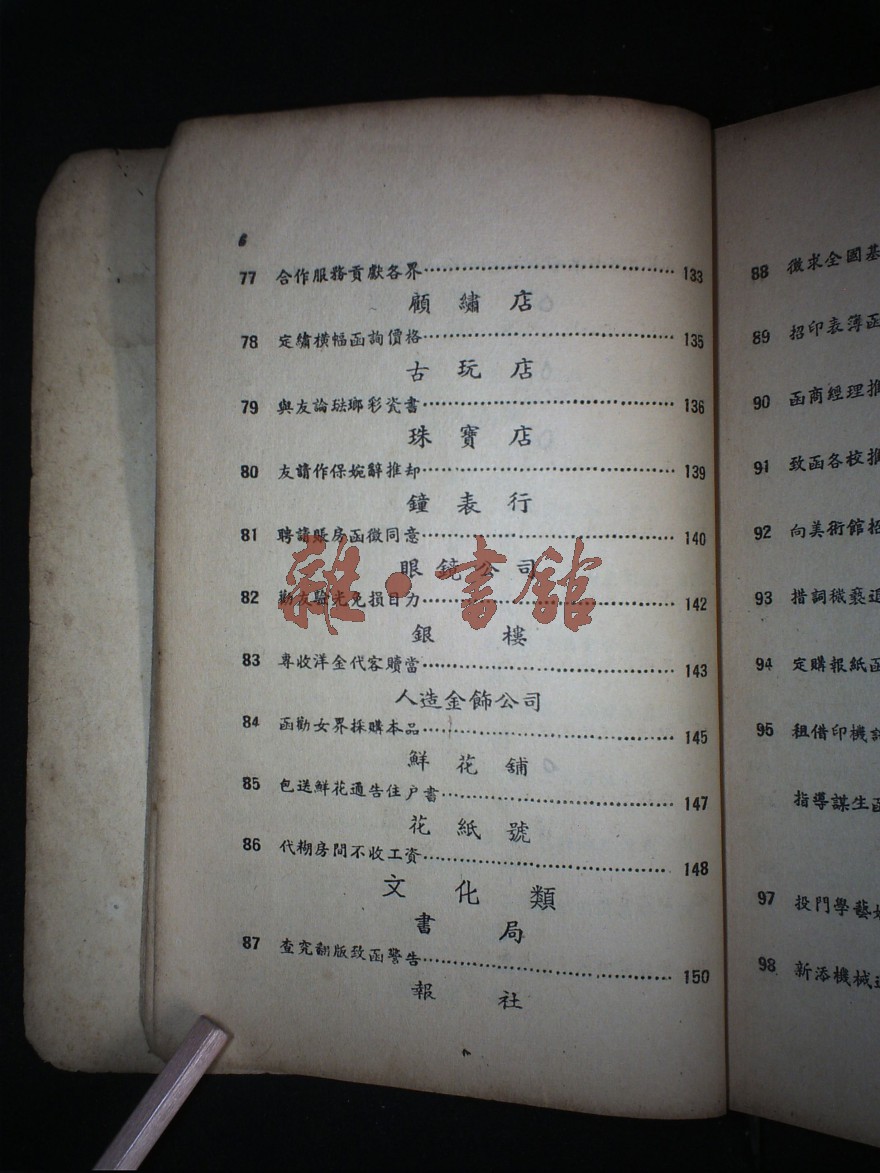 6
77 合作服務貢獻各界 133
顧繡店
78 定繡橫幅函詢價格 135
古玩店
79 與友論琺瑯彩瓷書 136
珠寶店
80 友請作保婉辭推却 139
鐘表行
81 聘請賬房函徵同意 140
眼鏡公司
82 勸友驗光免損目力 142
銀樓
83 專收洋金代客贖當 143
人造金飾公司
84 函勸女界採購本品 145
鮮花舖
85 包送鮮花通告住户書 147
花紙號
86 代糊房間不收工資 148
文化類
書局
87 查究翻版致函警告 150
報社
雜·書館
88 徵求全國基
89 招印表簿函
90 函商經理推
91 致函各校推
92 向美術館招
93 措詞穢褻退
94 定購報紙函
95 租借印機
指導謀生函
97 投門學藝
98 新添機械